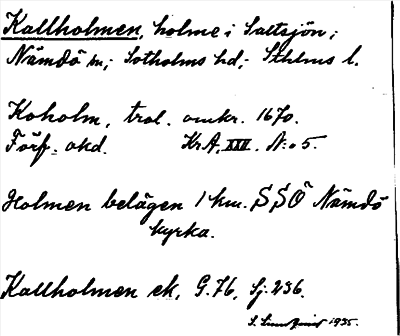 Kallholmen, holme i Saltsjön;
Nämdö sn; Sotholms hd; Sthlms l.
Koholm, trol. omkr. 1670.
Förf. okd. KrA, XXII. N:o 5.
Holmen belägen 1 km. SSÖ Nämdö
kyrka.
Kallholmen ek, G. 76, Sj. 236.
1935.